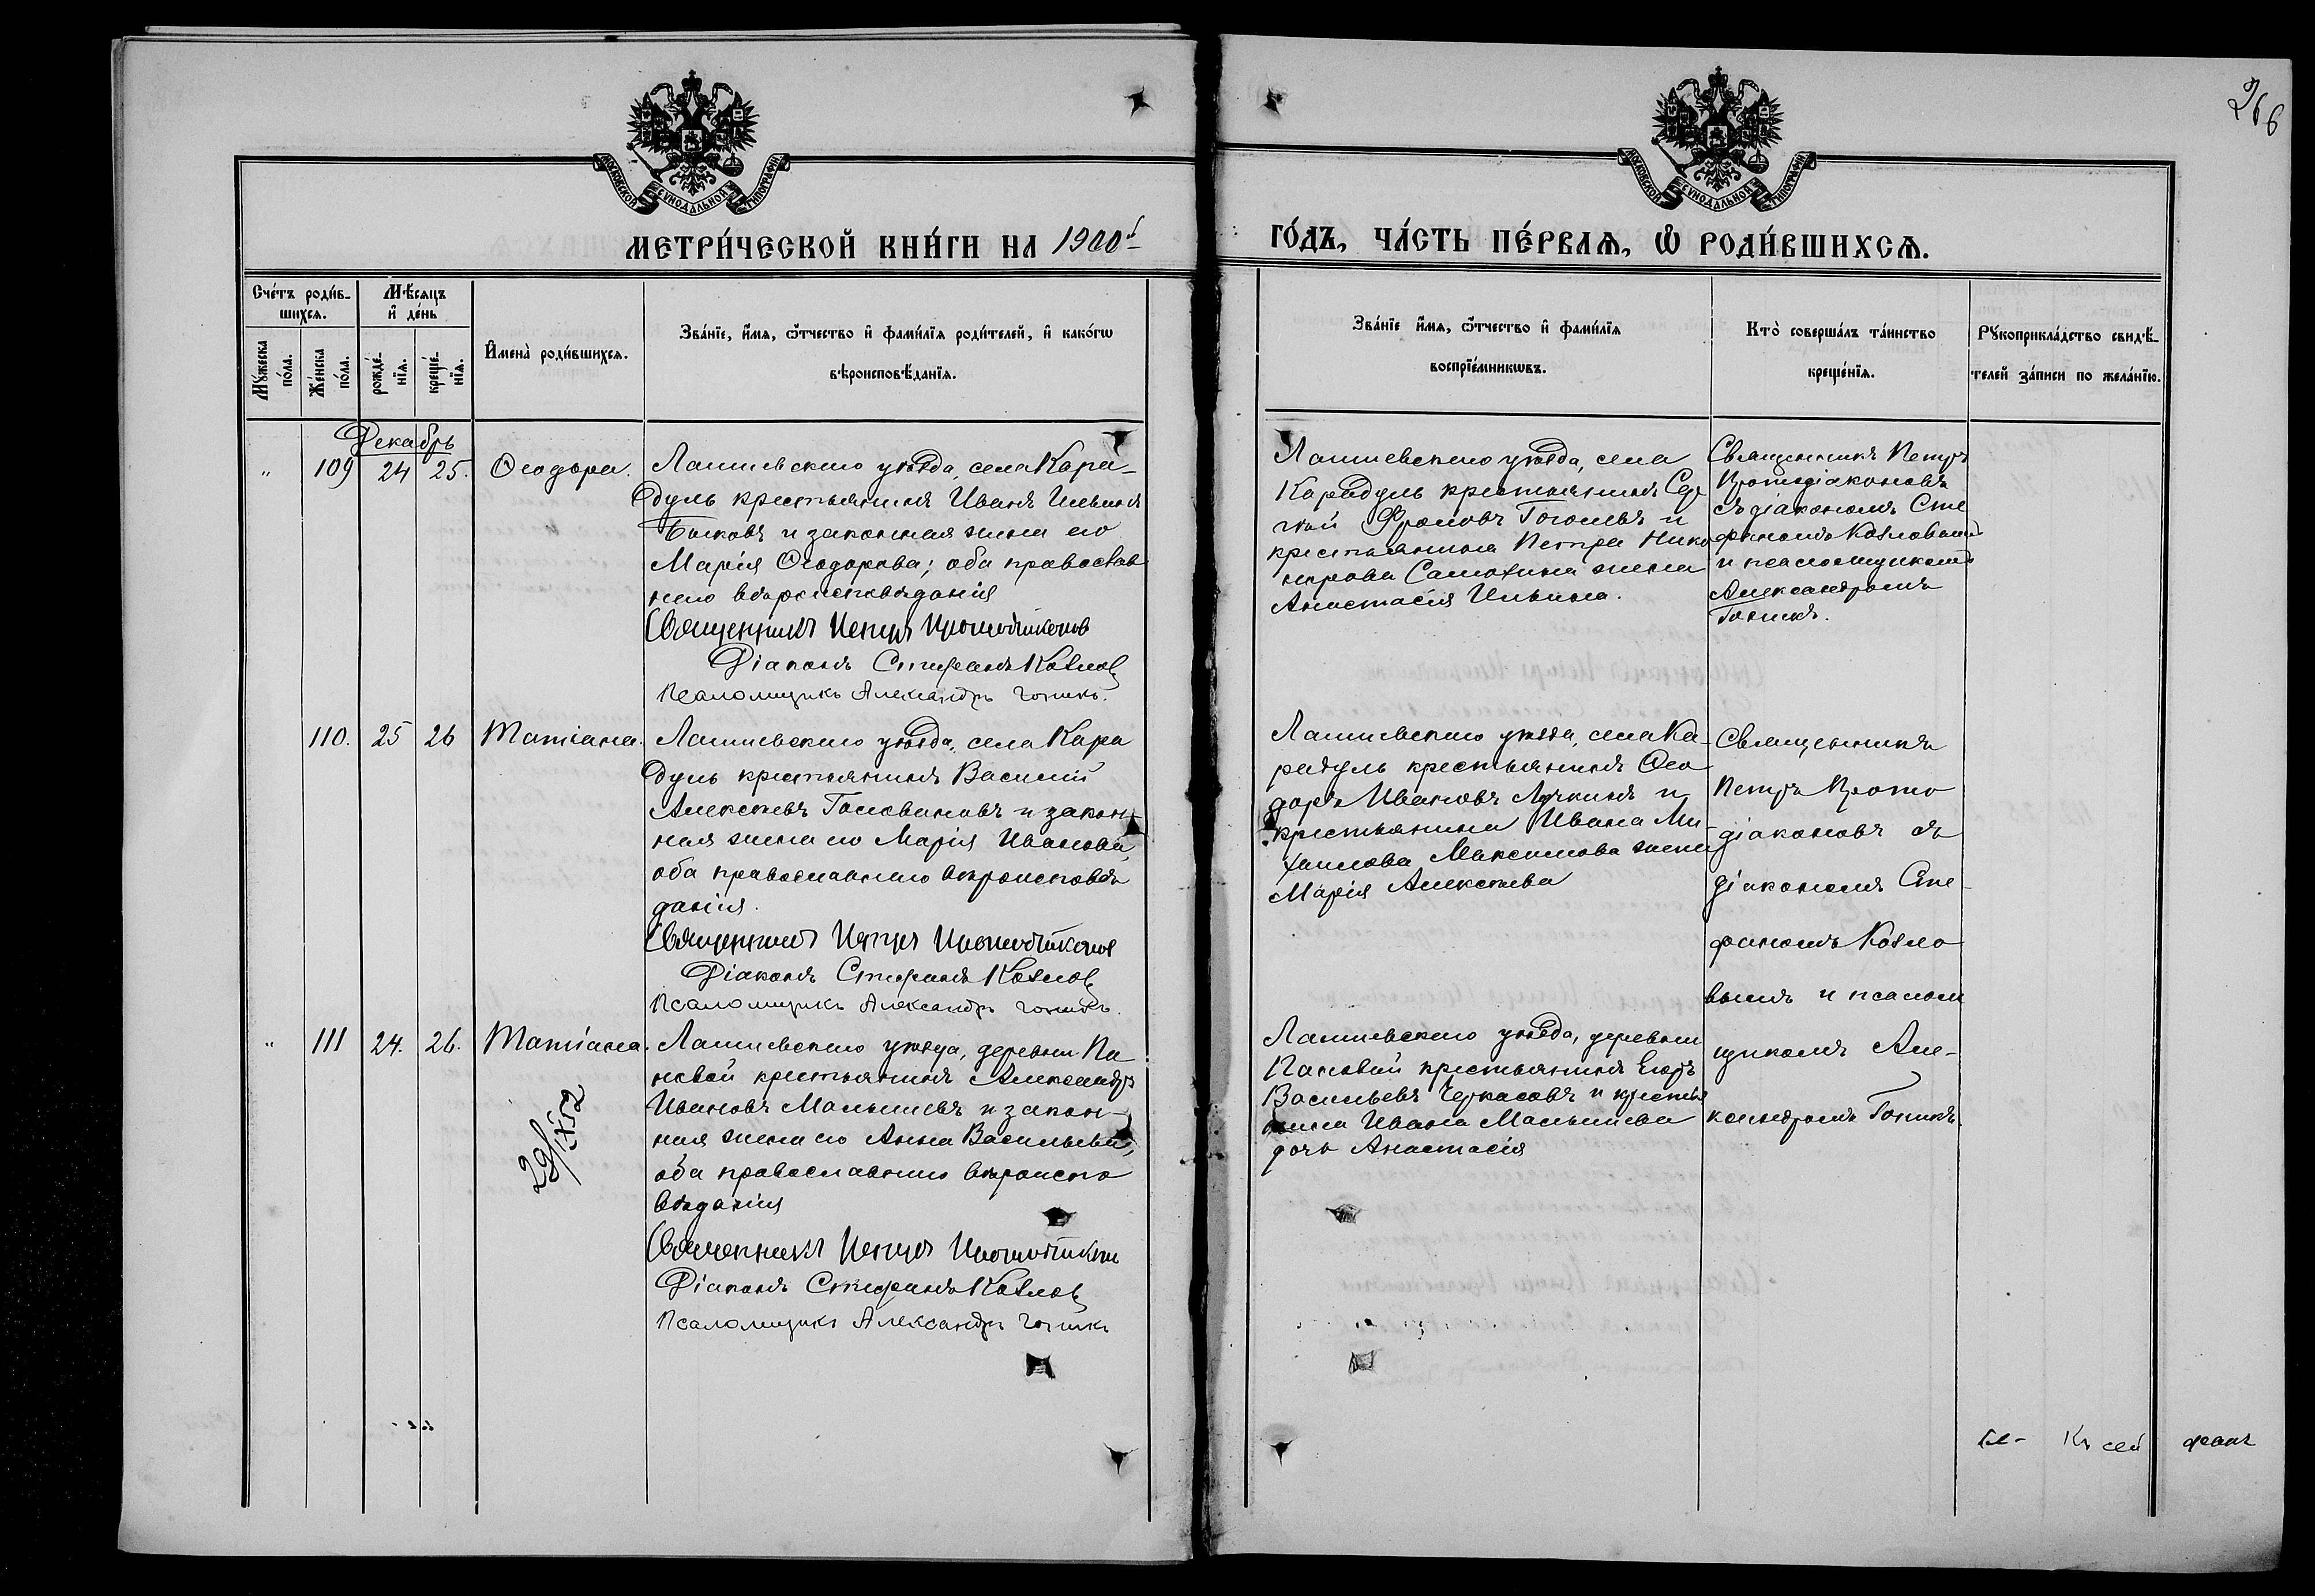 266
МОСКОВСКОЙ СѴНОДАЛЬНОЙ ТИПОГРАФІИ
МОСКОВСКОЙ СѴНОДАЛЬНОЙ ТИПОГРАФІИ
МЕТРИ́ЧЕСКОЙ КНИ́ГИ НА 1900й
ГО́ДЪ, ЧА́СТЬ ПЕ́РВАѦ, Ѽ РОДИ́ВШИХСѦ.
Счéтъ роди́в-
шихсѧ.
Мѣ́сѧцъ
и҆ де́нь
Мꙋ́жеска
по́ла.
Же́нска
по́ла.
рожде́-
нїѧ.
креще́-
нїѧ.
И҆мена̀ роди́вшихсѧ.
Зва́нїе, и҆́мѧ, ѻ҆́тчество и҆ фами́лїѧ роди́телей, и҆ како́гѡ
вѣроисповѣ́данїѧ.
Зва́нїе и҆́мѧ, ѻ҆́тчество и҆ фами́лїѧ
воспрїе́мникѡвъ.
Кто̀ соверша́лъ та́инство
креще́нїѧ.
Рꙋкоприкла́дство свидѣ́-
телей за́писи по жела́нїю.
Декабрь
" 109 24 25. Ѳеодора.
Лаишевскаго уѣзда, села Кара-
дуль крестьянинъ Иванъ Ильинъ
Быковъ и законная жена его
Марія Ѳеодорова; оба православ
наго вѣроисповѣданія
Священникъ Петръ Протодіаконов
Діаконъ Стефанъ Козлов
Псаломщикъ Александръ Гоникъ.
Лаишевскаго уѣзда, села
Карадуль крестьянинъ Сер
гѣй Фроловъ Гоголевъ и
крестьянина Петра Нико
норова Самохина жена
Анастасія Ильина.
Священникъ Петръ
Протодіаконовъ
съ діакономъ Сте
фаномъ Козловымъ
и псаломщикомъ
Александромъ
Гоникъ.
110. 25 26 Татіана.
Лаишевскаго уѣзда, села Кара
дуль крестьянинъ Василій
Алексѣевъ Головановъ и закон-
ная жена его Марія Иванова,
оба православнаго вѣроисповѣ
данія.
Священникъ Петръ Протодіаконов
Діаконъ Стефанъ Козлов
Псаломщикъ Александръ Гоникъ.
Лаишевскаго уѣзда, села Ка-
радуль крестьянинъ Ѳео
доръ Ивановъ Лучкинъ и
крестьянина Ивана Ми-
хаилова Максимова жена
Марія Алексѣева
Священникъ
Петръ Прото
діаконовъ съ
діакономъ Сте-
фаномъ Козло
вымъ и псалом
щикомъ Але-
ксандромъ Гоникъ.
" 111 24. 26. Татіана.
29/IX 52
Лаишевскаго уѣзда, деревни Па
новой крестьянинъ Александръ
Ивановъ Малышевъ и закон-
ная жена его Анна Васильева,
оба православнаго вѣроиспо
вѣданія
Священникъ Петръ Протодіаконов
Діаконъ Стефанъ Козлов
Псаломщикъ Александръ Гоникъ
Лаишевскаго уѣзда, деревни
Пановой крестьянинъ Егоръ
Васильевъ Черкасовъ и крестья
нина Ивана Малышева
дочь Анастасія
Къ сей